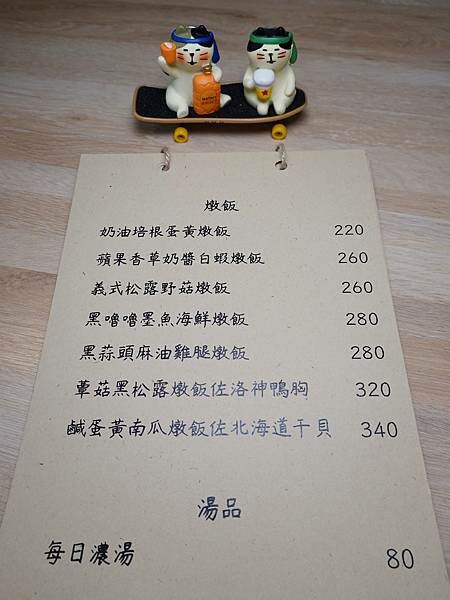 燉飯
奶油培根蛋黃燉飯 220
蘋果香草奶醬白蝦燉飯 260
義式松露野菇燉飯 260
黑嚕嚕墨魚海鮮燉飯 280
黑蒜頭麻油雞腿燉飯 280
蕈菇黑松露燉飯佐洛神鴨胸 320
鹹蛋黃南瓜燉飯佐北海道干貝 340
湯品
每日濃湯 80